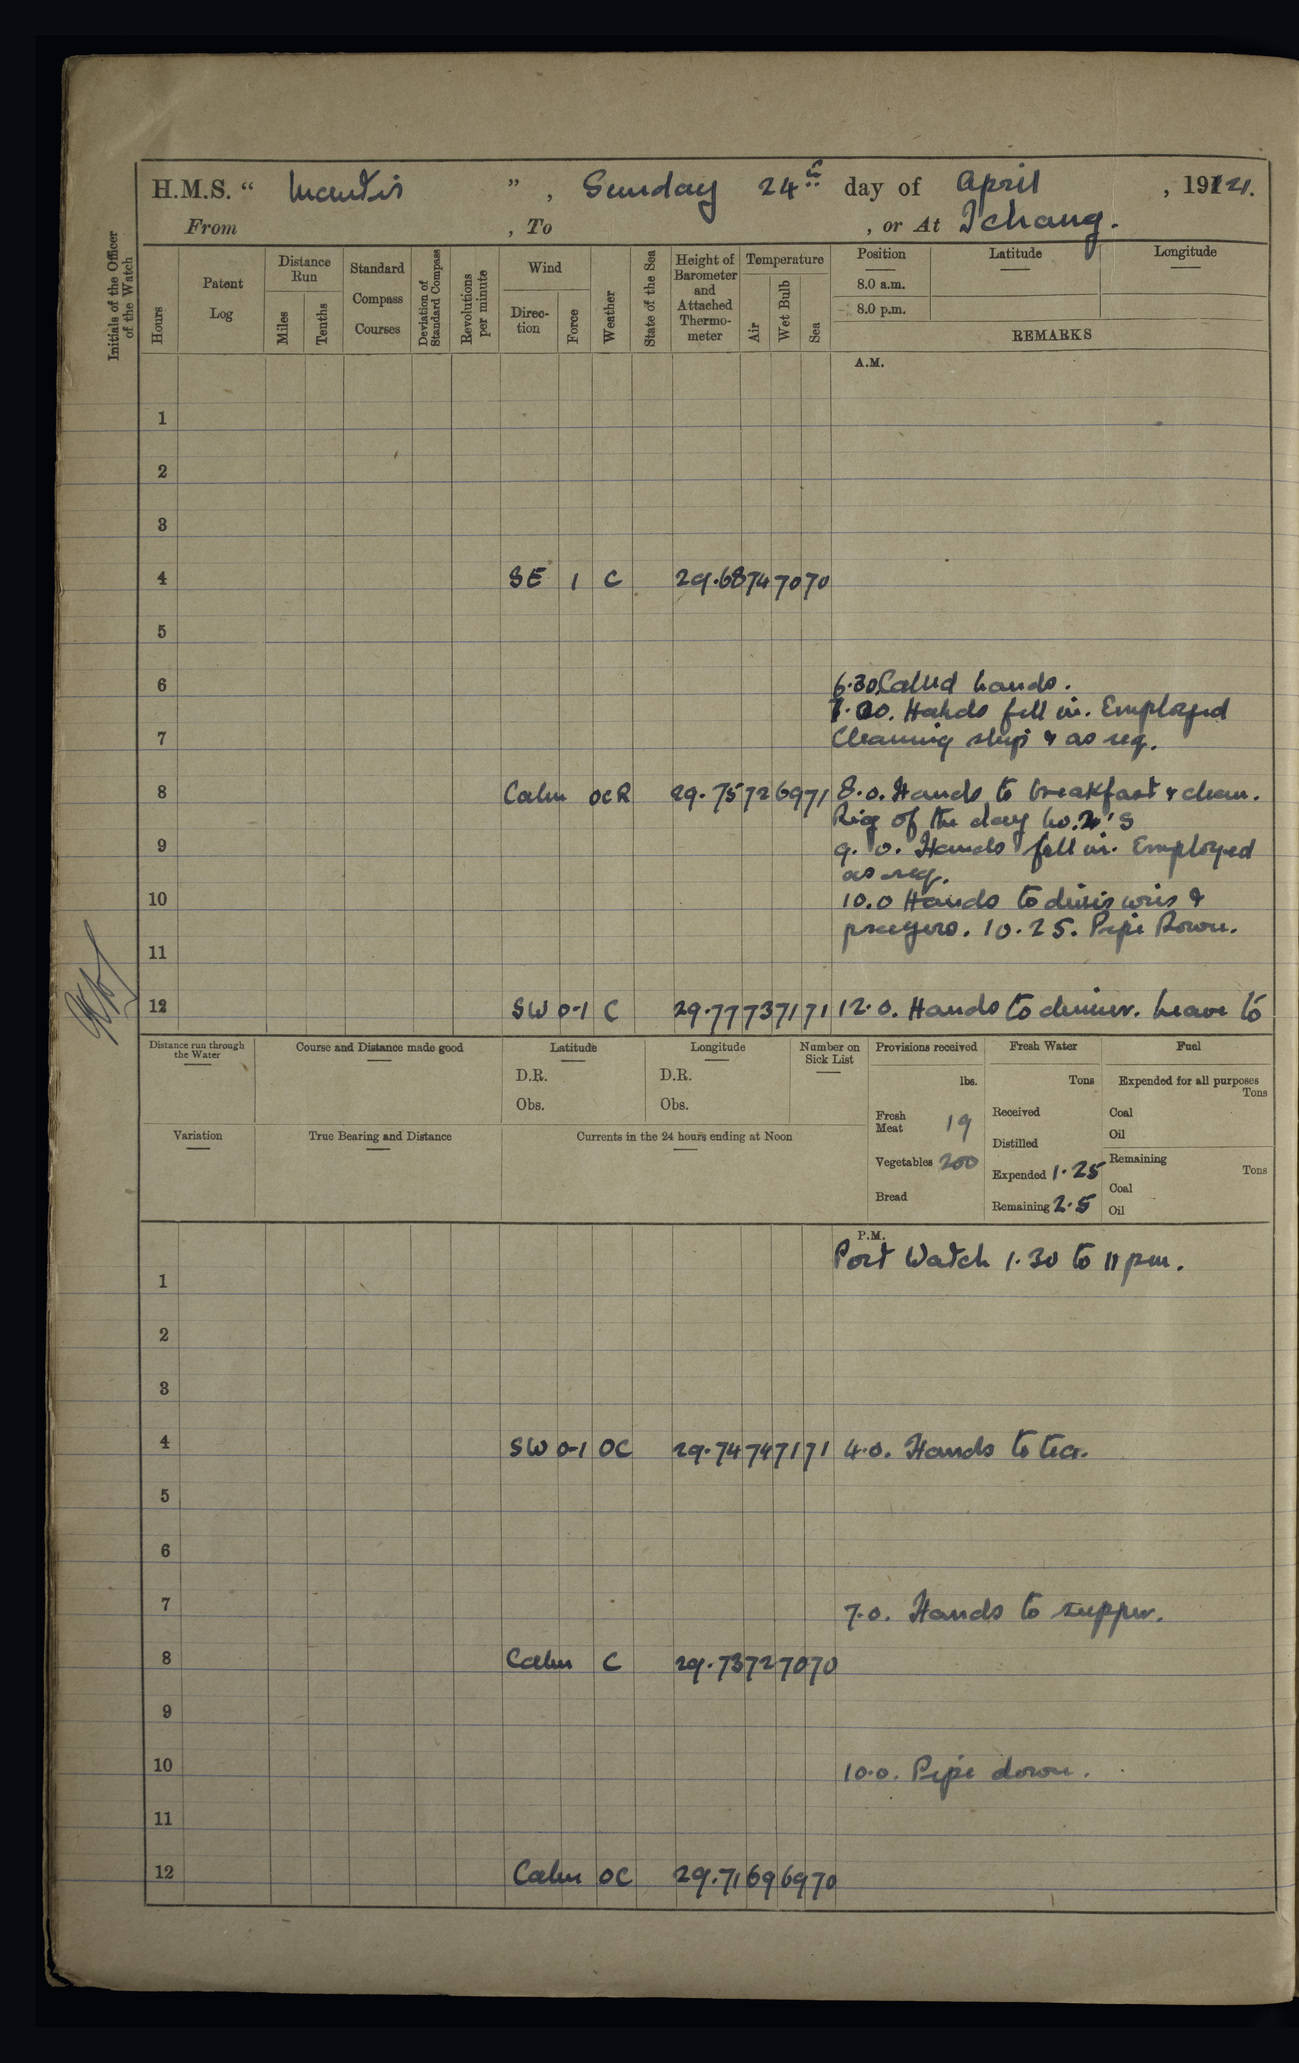 H.M.S. “ Mantis ” , Sunday 24th day of April , 1921.
From , To , or At Ichang.
Initials of the Officer of the Watch
Hours
Patent Log
Distance Run
Miles
Tenths
Standard Compass Courses
Deviation of Standard Compass
Revolutions per minute
Wind
Direction
Force
Weather
State of the Sea
Height of Barometer and Attached Thermometer
Temperature
Air
Wet Bulb
Sea
Position
8.0 a.m.
8.0 p.m.
Latitude
Longitude
REMARKS
A.M.
1
2
3
4 SE 1 C 29.68 74 70 70
5
6 6.30 Called hands.
7.00. Hands fell in. Employed
7 Cleaning ship & as req.
8 Calm OCR 29.75 72 69 71 8.0. Hands to breakfast & clean.
Rig of the day No.
9 9.0. Hands fell in. Employed
as req.
10 10.0 Hands to divisions &
prayers. 10.25. Pipe Down.
11
12 SW 0-1 C 29.77 73 71 71 12.0. Hands to dinner. Leave to
Distance run through the Water
Course and Distance made good
Latitude
D.R.
Obs.
Longitude
D.R.
Obs.
Number on Sick List
Provisions received
lbs.
Fresh Meat 19
Vegetables 200
Bread
Fresh Water
Tons
Received
Distilled
Expended 1.25
Remaining 2.5
Fuel
Expended for all purposes
Tons
Coal
Oil
Remaining
Tons
Coal
Oil
Variation
True Bearing and Distance
Currents in the 24 hours ending at Noon
P.M.
Port Watch 1.30 to 11 pm.
1
2
3
4 SW 0-1 OC 29.74 74 71 71 4.0. Hands to tea.
5
6
7 7.0. Hands to supper.
8 Calm C 29.73 72 70 70
9
10 10.0. Pipe down.
11
12 Calm OC 29.71 69 69 70